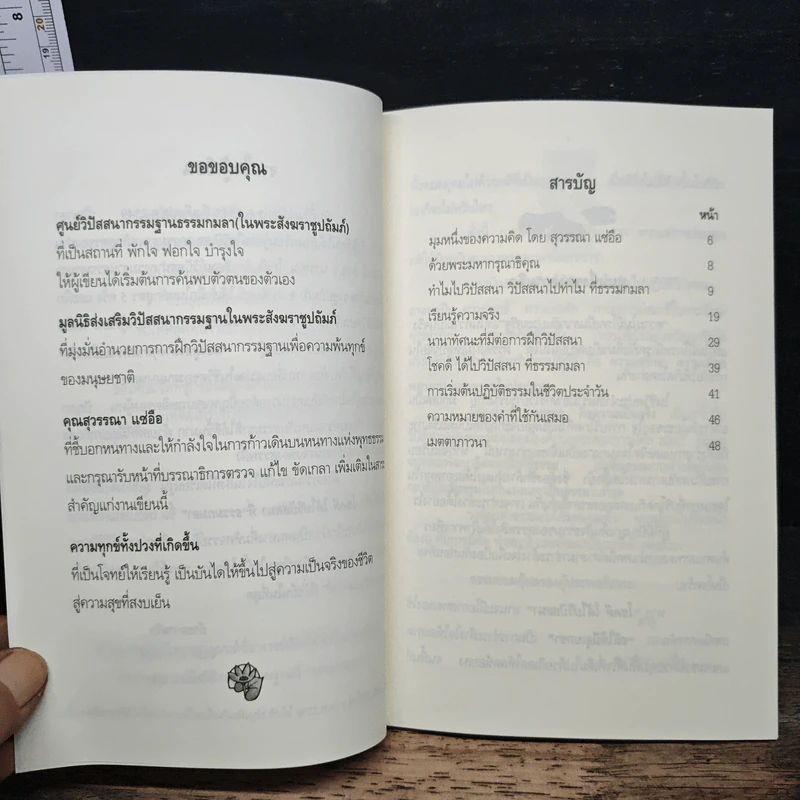 8
20
19
ขอขอบคุณ
ศูนย์วิปัสสนากรรมฐานธรรมกมลา(ในพระสังฆราชูปถัมภ์)
ที่เป็นสถานที่ พักใจ ฟอกใจ บำรุงใจ
ให้ผู้เขียนได้เริ่มต้นการค้นพบตัวตนของตัวเอง
มูลนิธิส่งเสริมวิปัสสนากรรมฐานในพระสังฆราชูปถัมภ์
ที่มุ่งมั่นอำนวยการการฝึกวิปัสสนากรรมฐานเพื่อความพ้นทุกข์
ของมนุษยชาติ
คุณสุวรรณา แซ่อือ
ที่ชี้บอกหนทางและให้กำลังใจในการก้าวเดินบนหนทางแห่งพุทธธรรม
และกรุณารับหน้าที่บรรณาธิการตรวจ แก้ไข ขัดเกลา เพิ่มเติมในสาระ
สำคัญแก่งานเขียนนี้
ความทุกข์ทั้งปวงที่เกิดขึ้น
ที่เป็นโจทย์ให้เรียนรู้ เป็นบันไดให้ขึ้นไปสู่ความเป็นจริงของชีวิต
สู่ความสุขที่สงบเย็น
สารบัญ
หน้า
มุมหนึ่งของความคิด โดย สุวรรณา แซ่อือ 6
ด้วยพระมหากรุณาธิคุณ 8
ทำไมไปวิปัสสนา วิปัสสนาไปทำไม ที่ธรรมกมลา 9
เรียนรู้ความจริง 19
นานาทัศนะที่มีต่อการฝึกวิปัสสนา 29
โชคดี ได้ไปวิปัสสนา ที่ธรรมกมลา 39
การเริ่มต้นปฏิบัติธรรมในชีวิตประจำวัน 41
ความหมายของคำที่ใช้กันเสมอ 46
เมตตาภาวนา 48